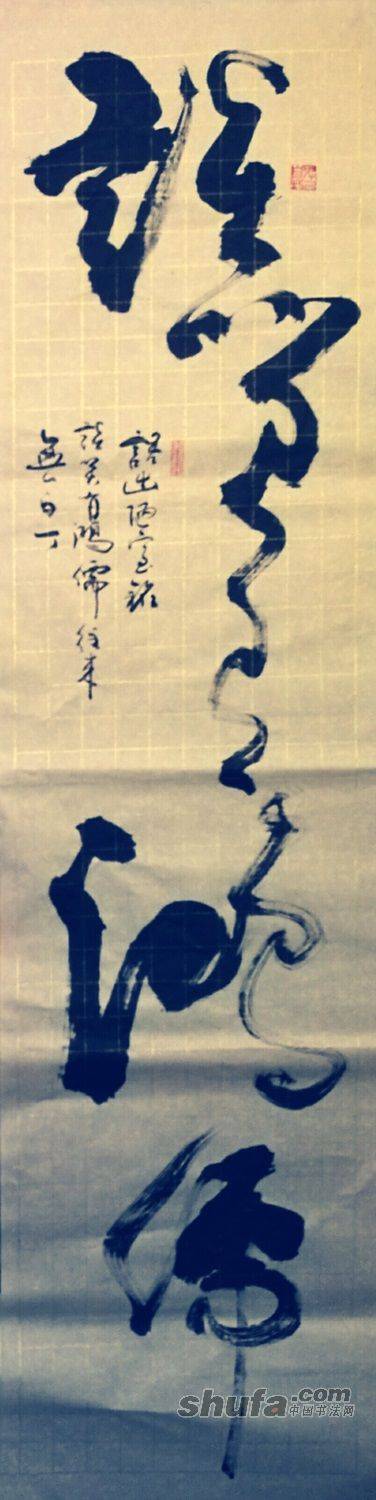 談笑有鴻儒
語出陋室銘
談笑有鴻儒往來
無白丁
shufa.com
中国书法网